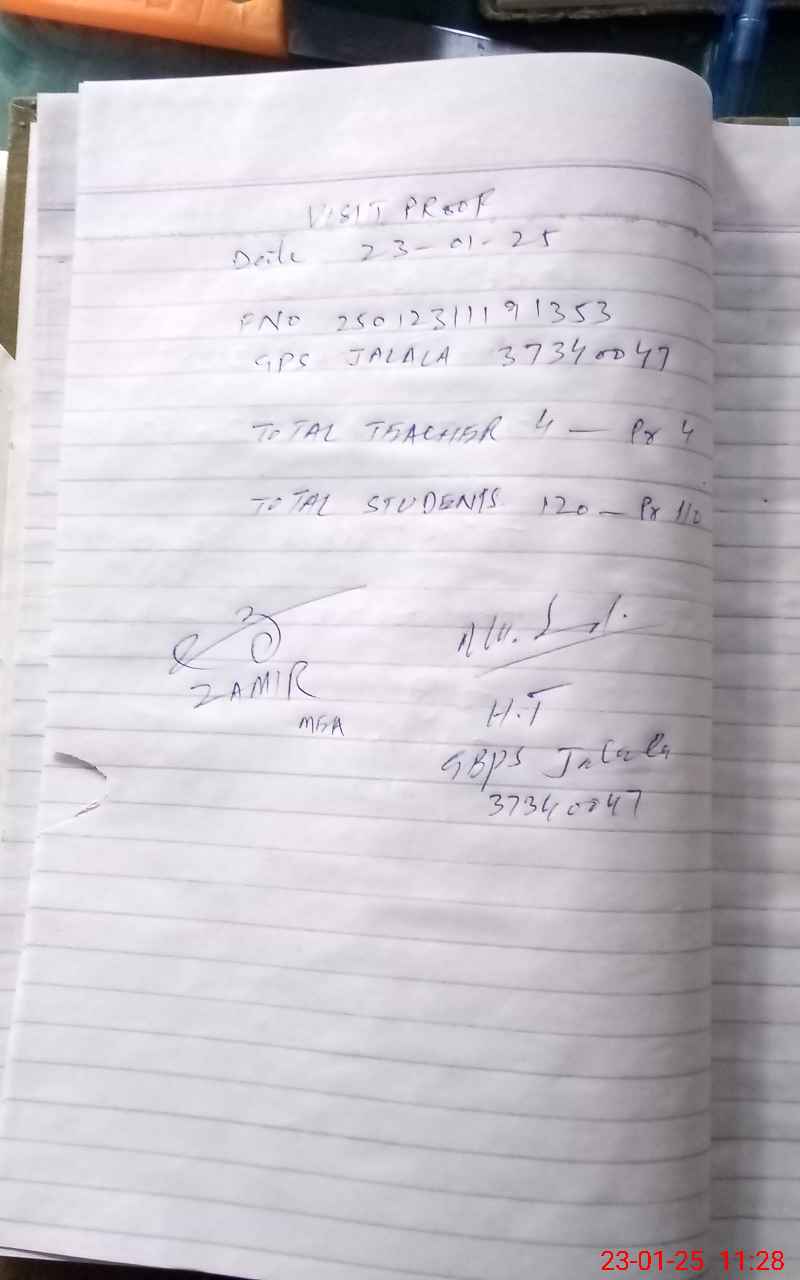 VISIT PROOF
Date 23-01-25
FNO 250123111191353
GPS JALALA 37340047
TOTAL TEACHER 4 — Pr 4
TOTAL STUDENTS 120 — Pr 110
ZAMIR
MEA
H.T
GBPS Jalala
37340047
23-01-25 11:28